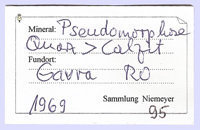 Mineral: Pseudomorphose
Quarz > Calzit
Fundort:
Gavra RO
1969 Sammlung Niemeyer
95